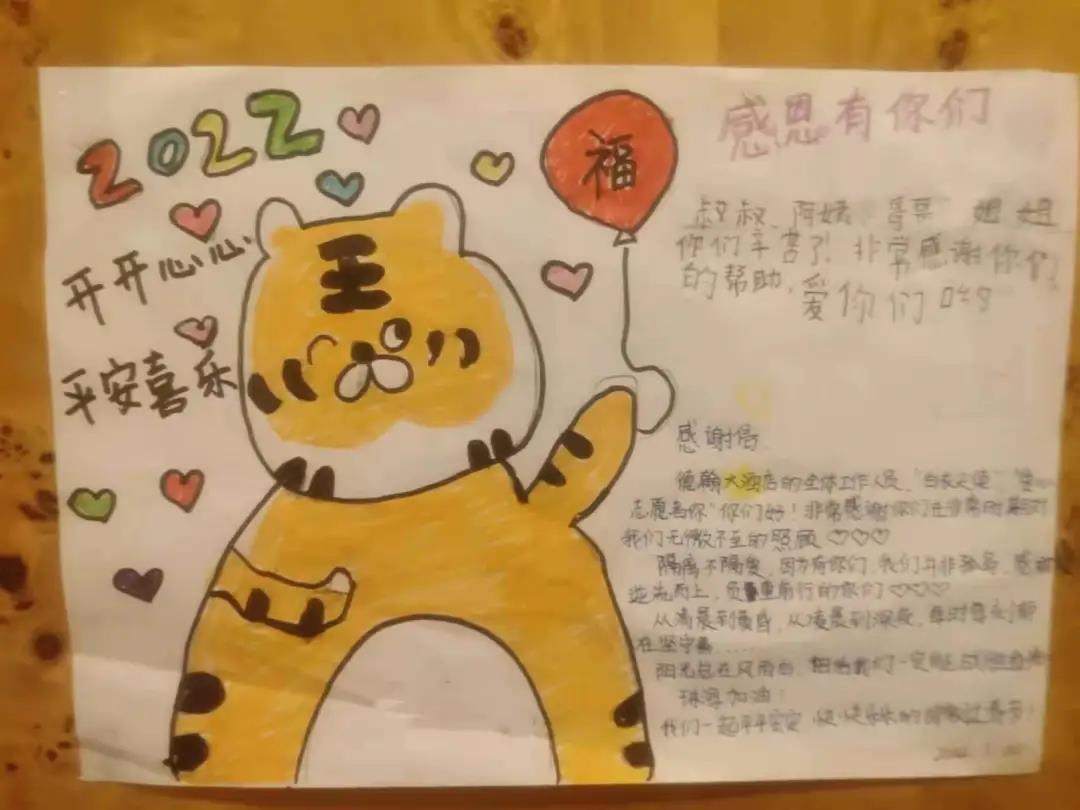 2022
开开心心
平安喜乐
王
福
感恩有你们
叔叔、阿姨 哥哥 姐姐
你们辛苦了！非常感谢你们
的帮助，爱你们
感谢信
德翰大酒店的全体工作人员、"白衣天使"
志愿者你"你们好！非常感谢你们在非常时期对
我们无微不至的照顾♡♡♡
隔离不隔爱，因为有你们，我们并非孤岛，感
逆光而上，负重前行的你们♡♡♡
从清晨到黄昏，从凌晨到深夜，每时每刻都
在坚守着......
阳光总在风雨后，相信我们一定
珠海加油！
我们一起平平安安 快快乐乐的 过春节！